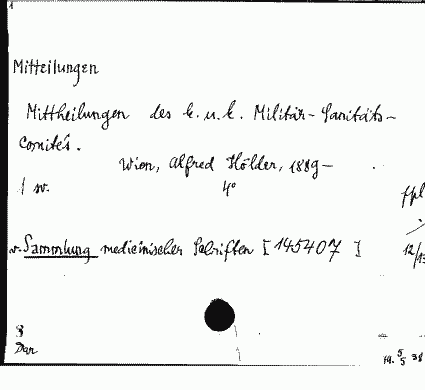 Mitteilungen
Mittheilungen des k. u. k. Militär-Sanitäts-
Comités.
Wien, Alfred Hölder, 1889-
4°
v. Sammlung medicinischer Schriften [145407]
12/13
8
Dar
19. 5/5 38